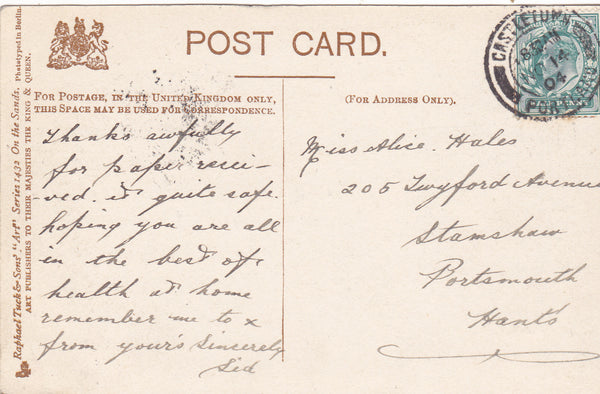 POST CARD.
FOR POSTAGE, IN THE UNITED KINGDOM ONLY,
THIS SPACE MAY BE USED FOR CORRESPONDENCE.
(FOR ADDRESS ONLY).
Thanks awfully
for paper recei-
ved. it quite safe.
hoping you are all
in the best of
health at home
remember me to x
from your's Sincerely
Sid
Miss Alice. Hales
205 Twyford Avenue
Stamshaw
Portsmouth
Hants
CASTLETOWN
14
04
PORTLAND
HALFPENNY
Raphael Tuck & Sons' "Art" Series 1432 On the Sands. Phototyped in Berlin.
ART PUBLISHERS TO THEIR MAJESTIES THE KING & QUEEN.